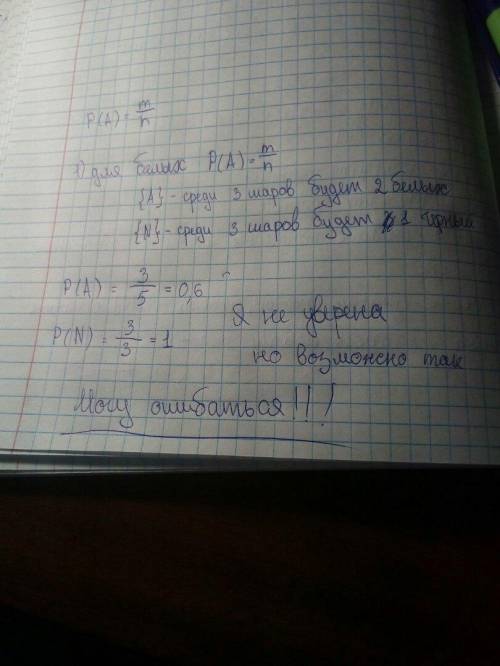 P(A) = m/n
1) для белых P(A) = m/n
{A} - среди 3 шаров будет 2 белых
{N} - среди 3 шаров будет 1 чёрный
P(A) = 3/5 = 0,6
Я не уверена
P(N) = 3/3 = 1
но возможно так
Могу ошибаться!!!